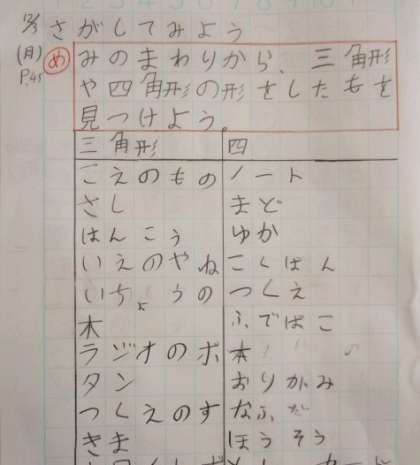 さがしてみよう
(月)
P.45
め みのまわりから、三角形
や四角形の形をしたもを
見つけよう。
三角形 四
こえのもの ノート
さし まど
はんこう ゆか
いえのやね こくばん
いちょうの つくえ
木 ふでばこ
ラジオのボ 本
タン おりがみ
つくえのす なふだ
きま ほうそう